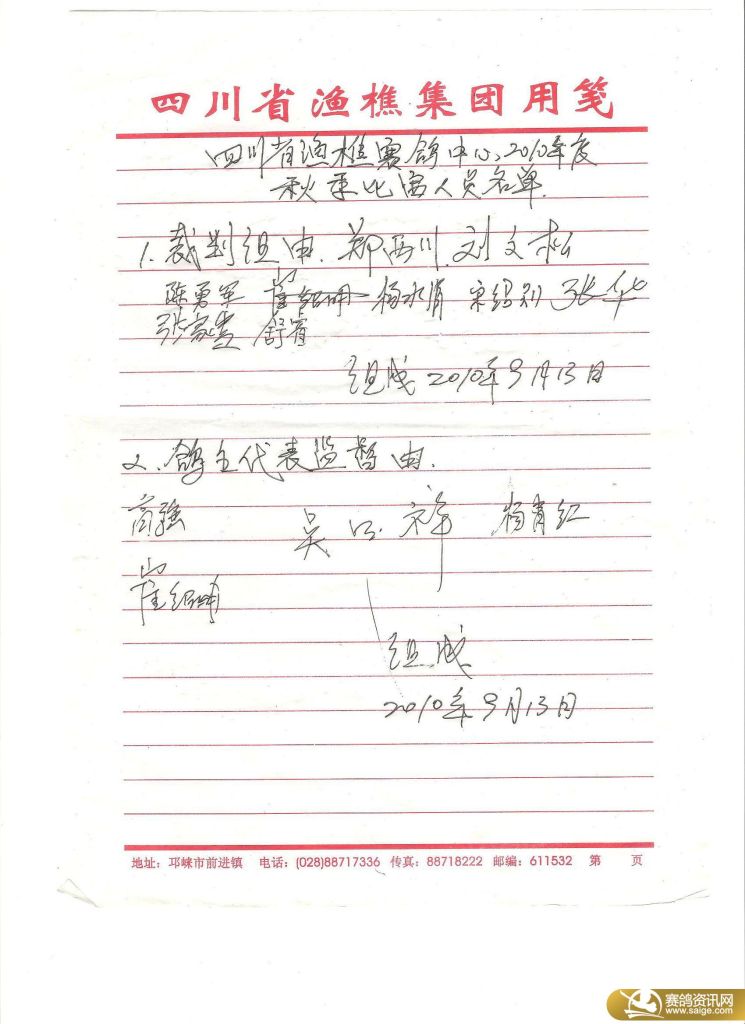 四川省渔樵集团用笺
四川省渔樵赛鸽中心、2010年度
秋季比赛人员名单
1. 裁判组由. 郑西川. 刘文松
陈勇军 杨水清 张华
舒睿
组成 2010年9月13日
2. 鸽主代表监督由.
高强 吴 祥 杨青红
崔绍
组成
2010年9月13日
地址：邛崃市前进镇 电话：(028)88717336 传真：88718222 邮编：611532 第 页
赛鸽资讯网
www.saige.com